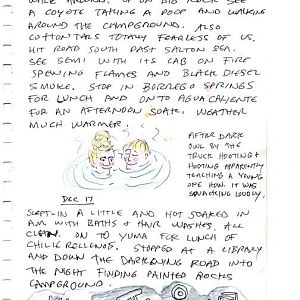 WALK AROUND. UP ON BIG ROCK SEE
A COYOTE TAKING A POOP AND WALKING
AROUND THE CAMPGROUND. ALSO
COTTONTAILS TOTALLY FEARLESS OF US.
HIT ROAD SOUTH PAST SALTON SEA.
SEE SEMI WITH ITS CAB ON FIRE
SPEWING FLAMES AND BLACK DIESEL
SMOKE. STOP IN BORREGO SPRINGS
FOR LUNCH AND ONTO AGUA CALIENTE
FOR AN AFTERNOON SOAK. WEATHER
MUCH WARMER.
AFTER DARK
OWL BY THE
TRUCK HOOTING +
HOOTING APPARENTLY
TEACHING A YOUNG
ONE HOW. IT WAS
SQUAWKING LOUDLY.
DEC 17
SLEPT IN A LITTLE AND HOT SOAKED IN
AM WITH BATHS + HAIR WASHES. ALL
CLEAN. ON TO YUMA FOR LUNCH OF
CHILIE RELLENOS. STOPPED AT A LIBRARY
AND DOWN THE DARKENING ROAD INTO
THE NIGHT FINDING PAINTED ROCKS
CAMPGROUND.